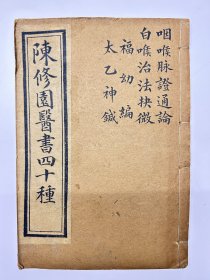 咽喉脉證通論
白喉治法抉微
福幼編
太乙神鍼
陳修園醫書四十種